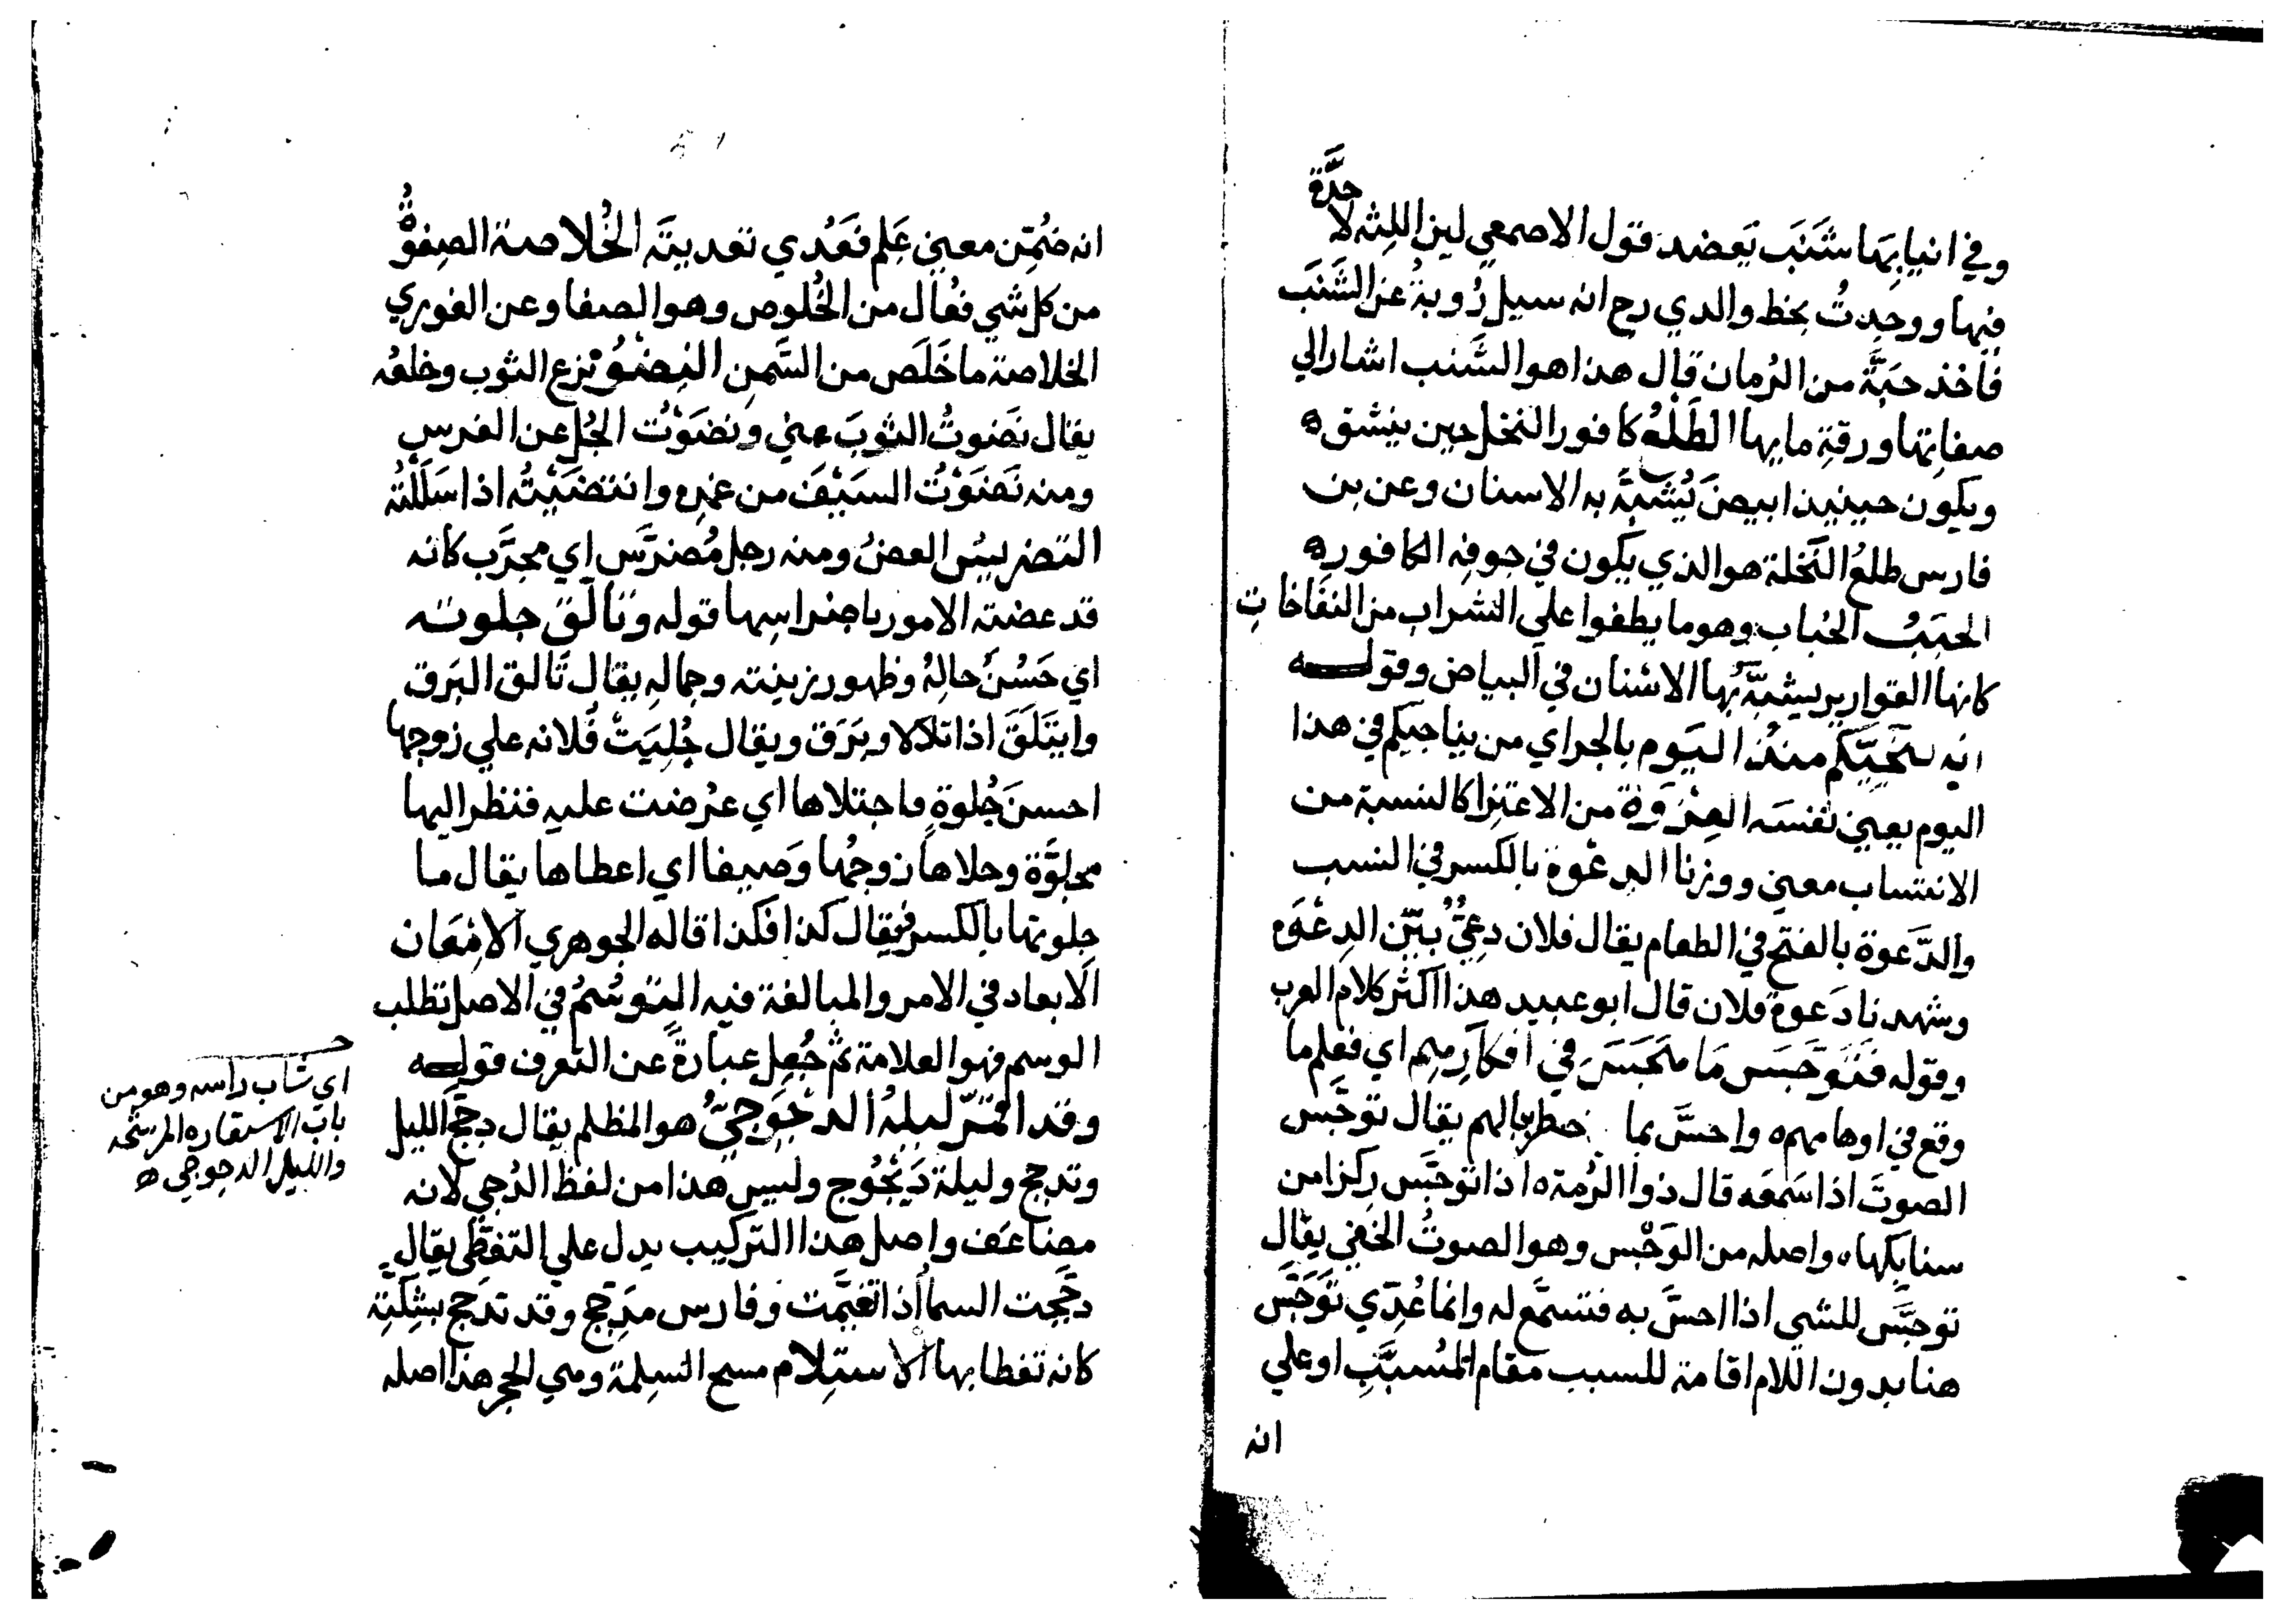 وفي انيابِهَا شَنَبَ يَعضد قول الاصمعي لين اللِثه لا حِدَّةَ
فيها ووجدتُ بخط والدي رح انه سيل رُوبةُ عن الشَنَب
فاخذ حبَّة من الرُمان قال هذا هو الشَنب اشار الي
صفايَها ورقةِ مايها الطَلْعُ كافور النخل حين ينشق ه
ويكون حينيذ ابيضَ يُشَبَّهُ به الاسنان وعن بن
فارس طلعُ النَخلة هو الذي يكون في جوفه الكافور ه
الحَبَبُ الحُباب وهو ما يطفوا علي الشراب من النفاخاتِ
كانها القوارير يشبَّهُ بها الاسنان في البياض وقولـــه
انه سَحِيُّكم منذُ اليَوم بالجر اي من يناجيكم في هذا
اليوم يعني نفسَه العِزْوَة من الاعتزا كالنسبة من
الانتساب معني ووزنا الدِعْوة بالكسر في النسب
والدَّعوة بالفتح في الطعام يقال فلان دعِيٌّ بيّن الدِعْوَه
وشهدنا دَعوةَ فلان قال ابو عبيد هذا اكثر كلام العرب
وقوله فَتَوَجَّسَ مَا هَجَسَ في افكارِهِم اي فعلم ما
وقع في اوهامهم ه واحسَّ بما خطر ببالهم يقال توجَّس
الصوتَ اذا سَمعَه قال ذوا الرُمة ه اذا توجَّس رِكزا من
سنابكها ه واصله من الوَجْس وهو الصوتُ الخفي يقال
توجَّسَ للشي اذا احسَّ به فتسمَّع له وانما عُدِّي تَوَجَّس
هنا بدون اللام اقامة للسبب مقام المُسبَّبِ او علي
انه
انه ضُمِّن معني عَلِم فعُدي تعديتَه الخُلاصة الصِفوةُ
من كل شي فُعال من الخُلوص وهو الصفا وعن الغوري
الخلاصة ما خَلَص من السَّمن النِضْوُ نزع الثوب وخلعُه
يقال نَضوتُ الثوبَ عني ونضَوْت الجُل عن الفرس
ومنه نَضَوْتُ السَيْفَ من غمدِه وانتضَيْتُه اذا سَلَلْتُه
التضريسُ العضُ ومنه رجل مُضرَّس اي مجرَّب كانه
قد عضته الامور باضراسِها قوله وَتالَق جلوته
اي حَسُنَ حالِهُ وظهور زينته وجمالِهِ يقال تَالق البَرق
وايتَلَقَ اذا تلالا وبَرَق ويقال جُلِيَتْ فُلانه علي زوجها
احسنَ جُلوةٍ فاجتلاها اي عرُضت عليه فنظر اليها
مجلوَّة وجلاها زوجُها وَصيفا اي اعطاها يقال ما
جِلوتها بالكسر فيقال كذا فكذا قاله الجوهري الاِمْعَان
الابعاد في الامر والمبالغة فيه التَوسُّمُ في الاصل تطلب
الوسم فهو العلامة ثم جُعِل عبارةً عن التعرف قولــه
وقد اقمَرّ ليلهُ الدَجُوجِيُّ هو المظلم يقال دجَّج الليل
وتدجج وليلة دَيْجُوج وليس هذا من لفظ الدُجي لانه
مضاعَف واصل هذا التركيب يدل علي التغطّي يقال
دجَّجت السماُ اذا تغيَّمَت وفارس مدَجّج وقد تدجّج بشِكّتِه
كانه تغطا بها الاستِلام مسح السِلمة وهي الحجر هذا اصله
اي شاب راسه وهو من
باب الاستعاره المرشحه
والليل الدجوجي ه